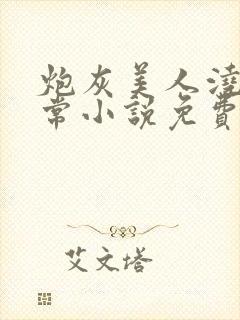 炮灰美人澆
常小說免費
艾文塔